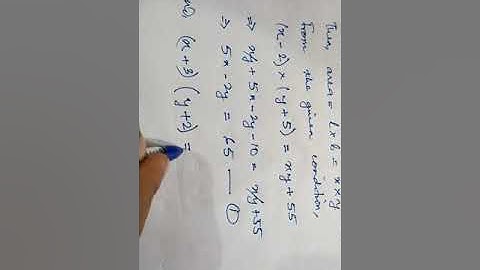 Then, area = l × b = x × y
from the given condition,
(x - 2) × (y + 5) = xy + 55
⇒ xy + 5x - 2y - 10 = xy + 55
⇒ 5x - 2y = 65 — ①
(x + 3) (y + 2) =